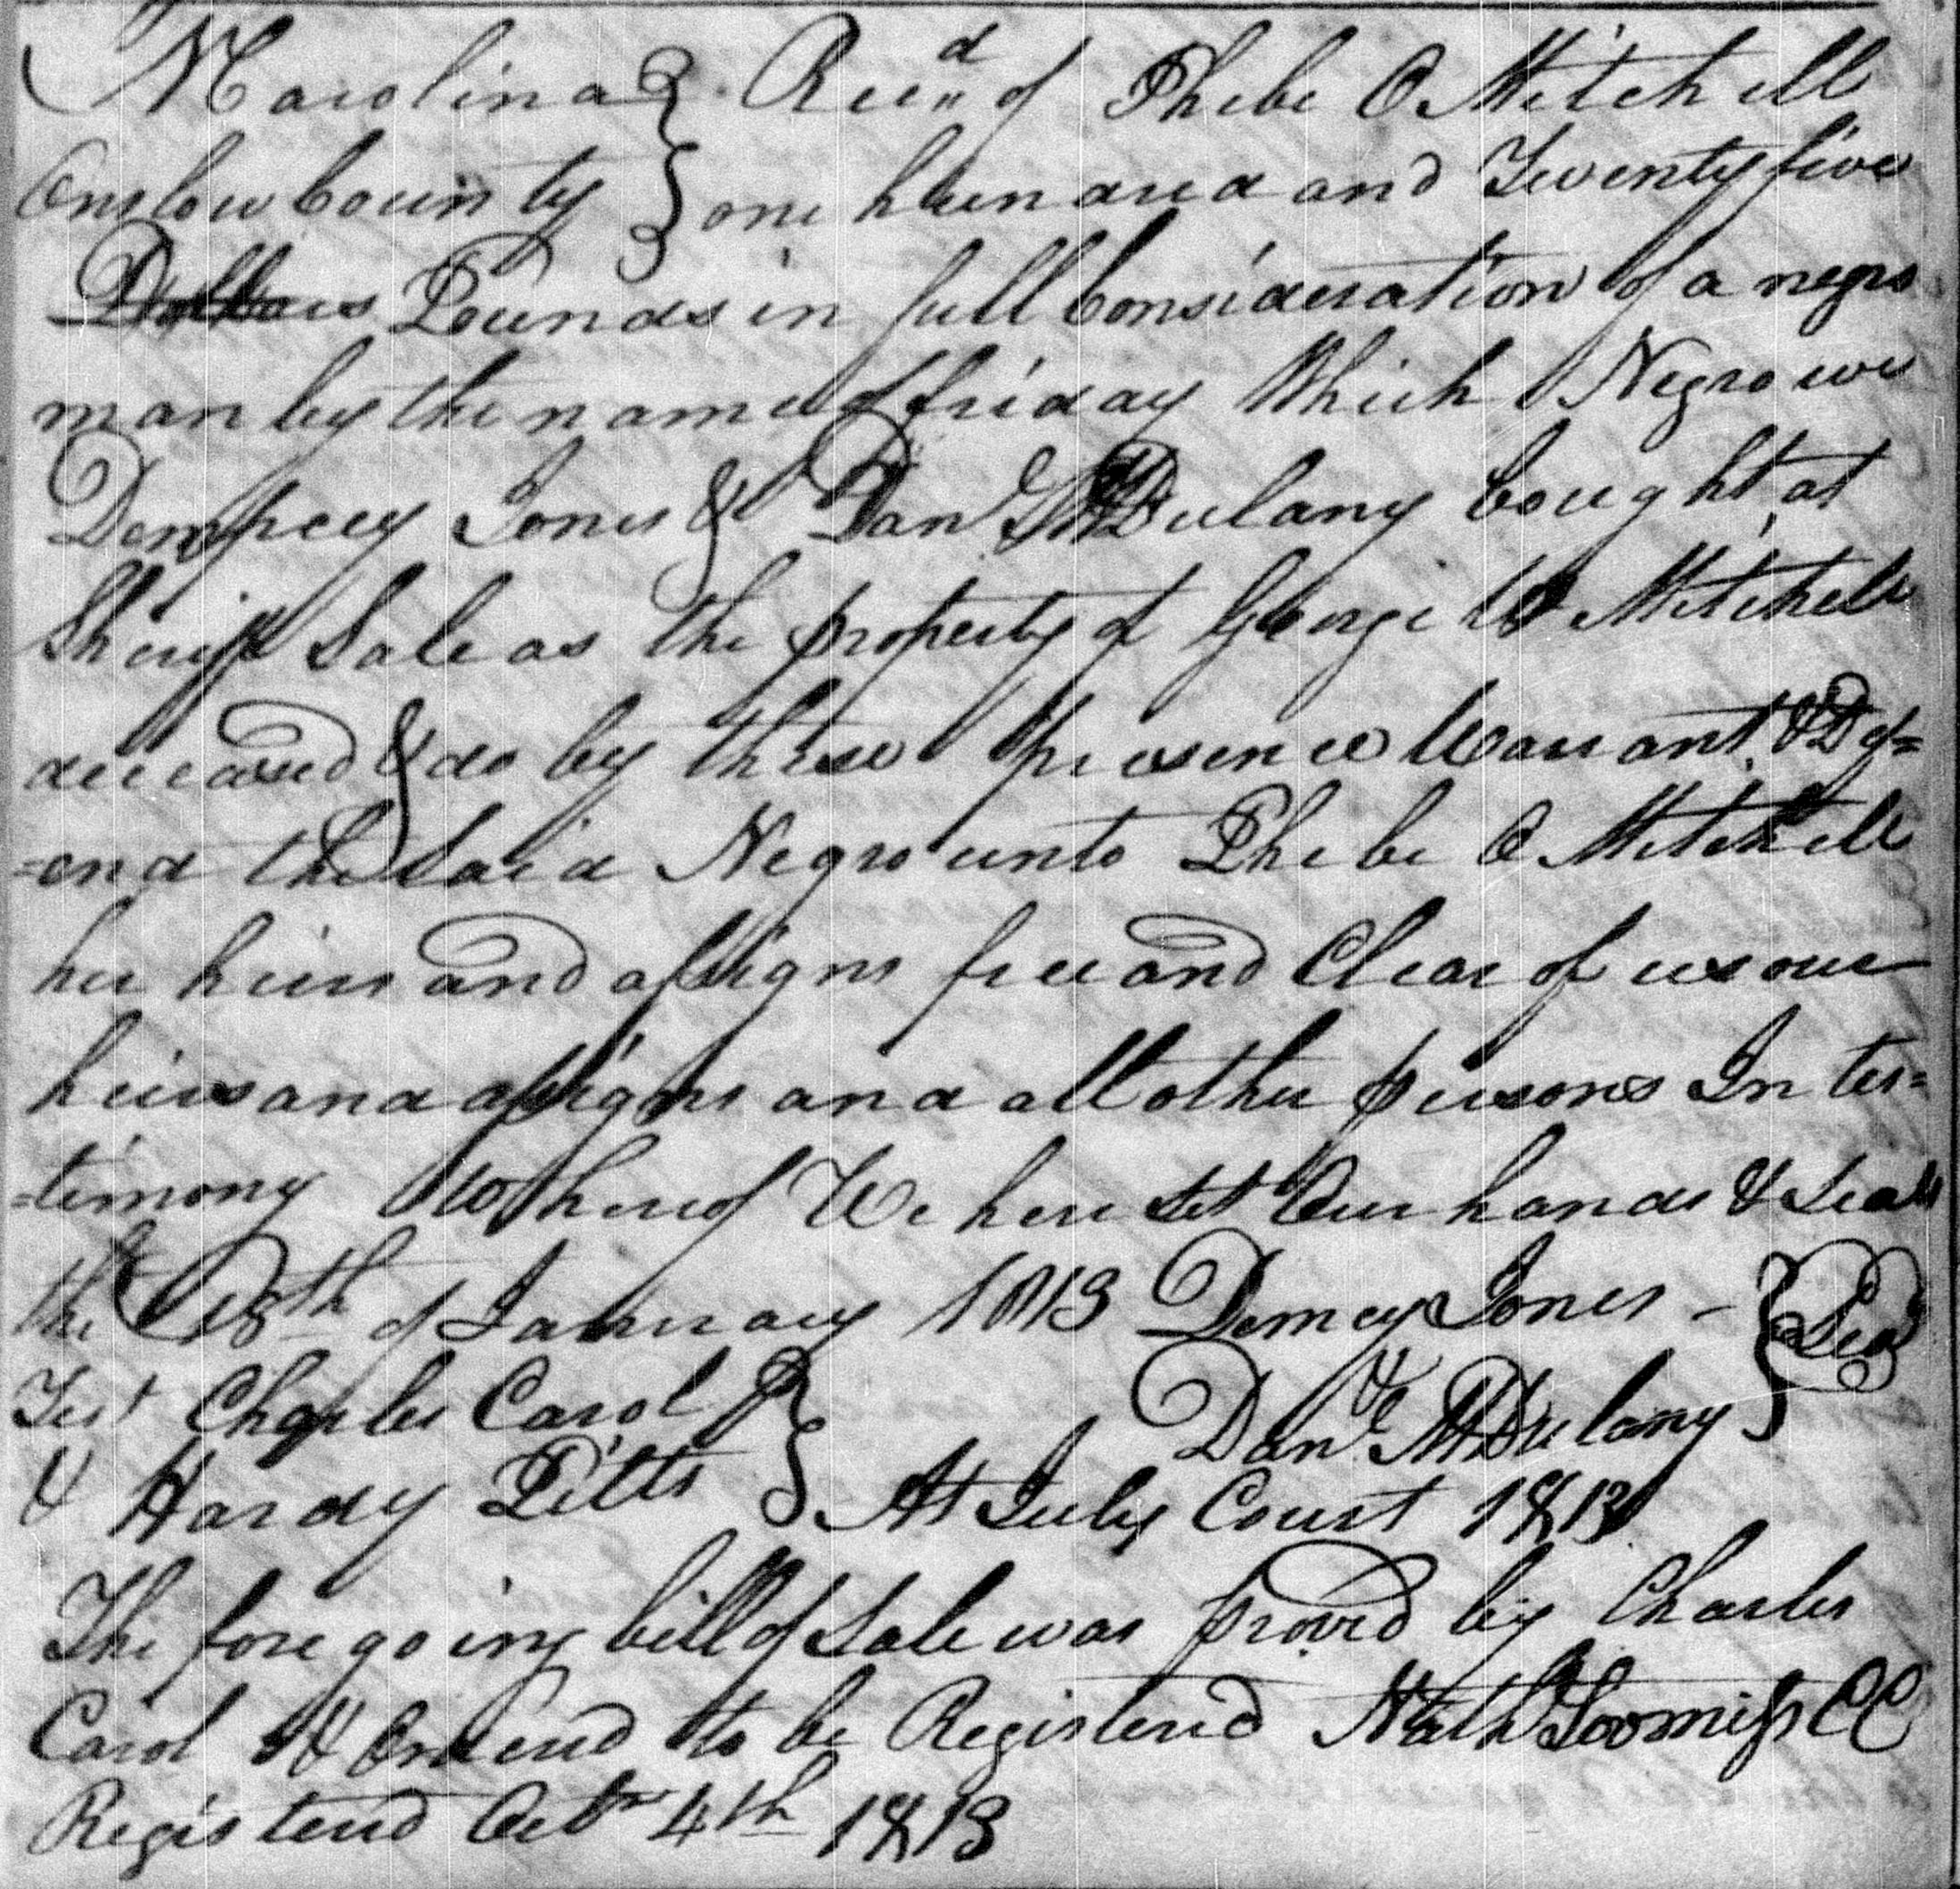 N Carolina } Recd of Phebe O Mitchell
Onslow County } one hundred and Twenty five
Dollars Pounds in full Consideration of a negro
man by the name of friday Which Negro we
Dempsey Jones & Danl McDulany bought at
Sheriff Sale as the property of George W Mitchell
deceased & do by these presence Warrant & Def=
=end the Said Negro unto Phebe O Mitchell
her heirs and assigns free and Clear of us our
heirs and assigns and all other persons In tes=
=timony Whereof We here Set Our hands & Seals
the 18th of January 1813 Demcy Jones - } Seal
Test Charles Carol } & Danl McDulany }
& Hardy Pitts } At July Court 1813
The fore going bill of Sale was proved by Charles
Carol & Ordered to be Registered Nath Loomiss CC
Registered Octr 4th 1813